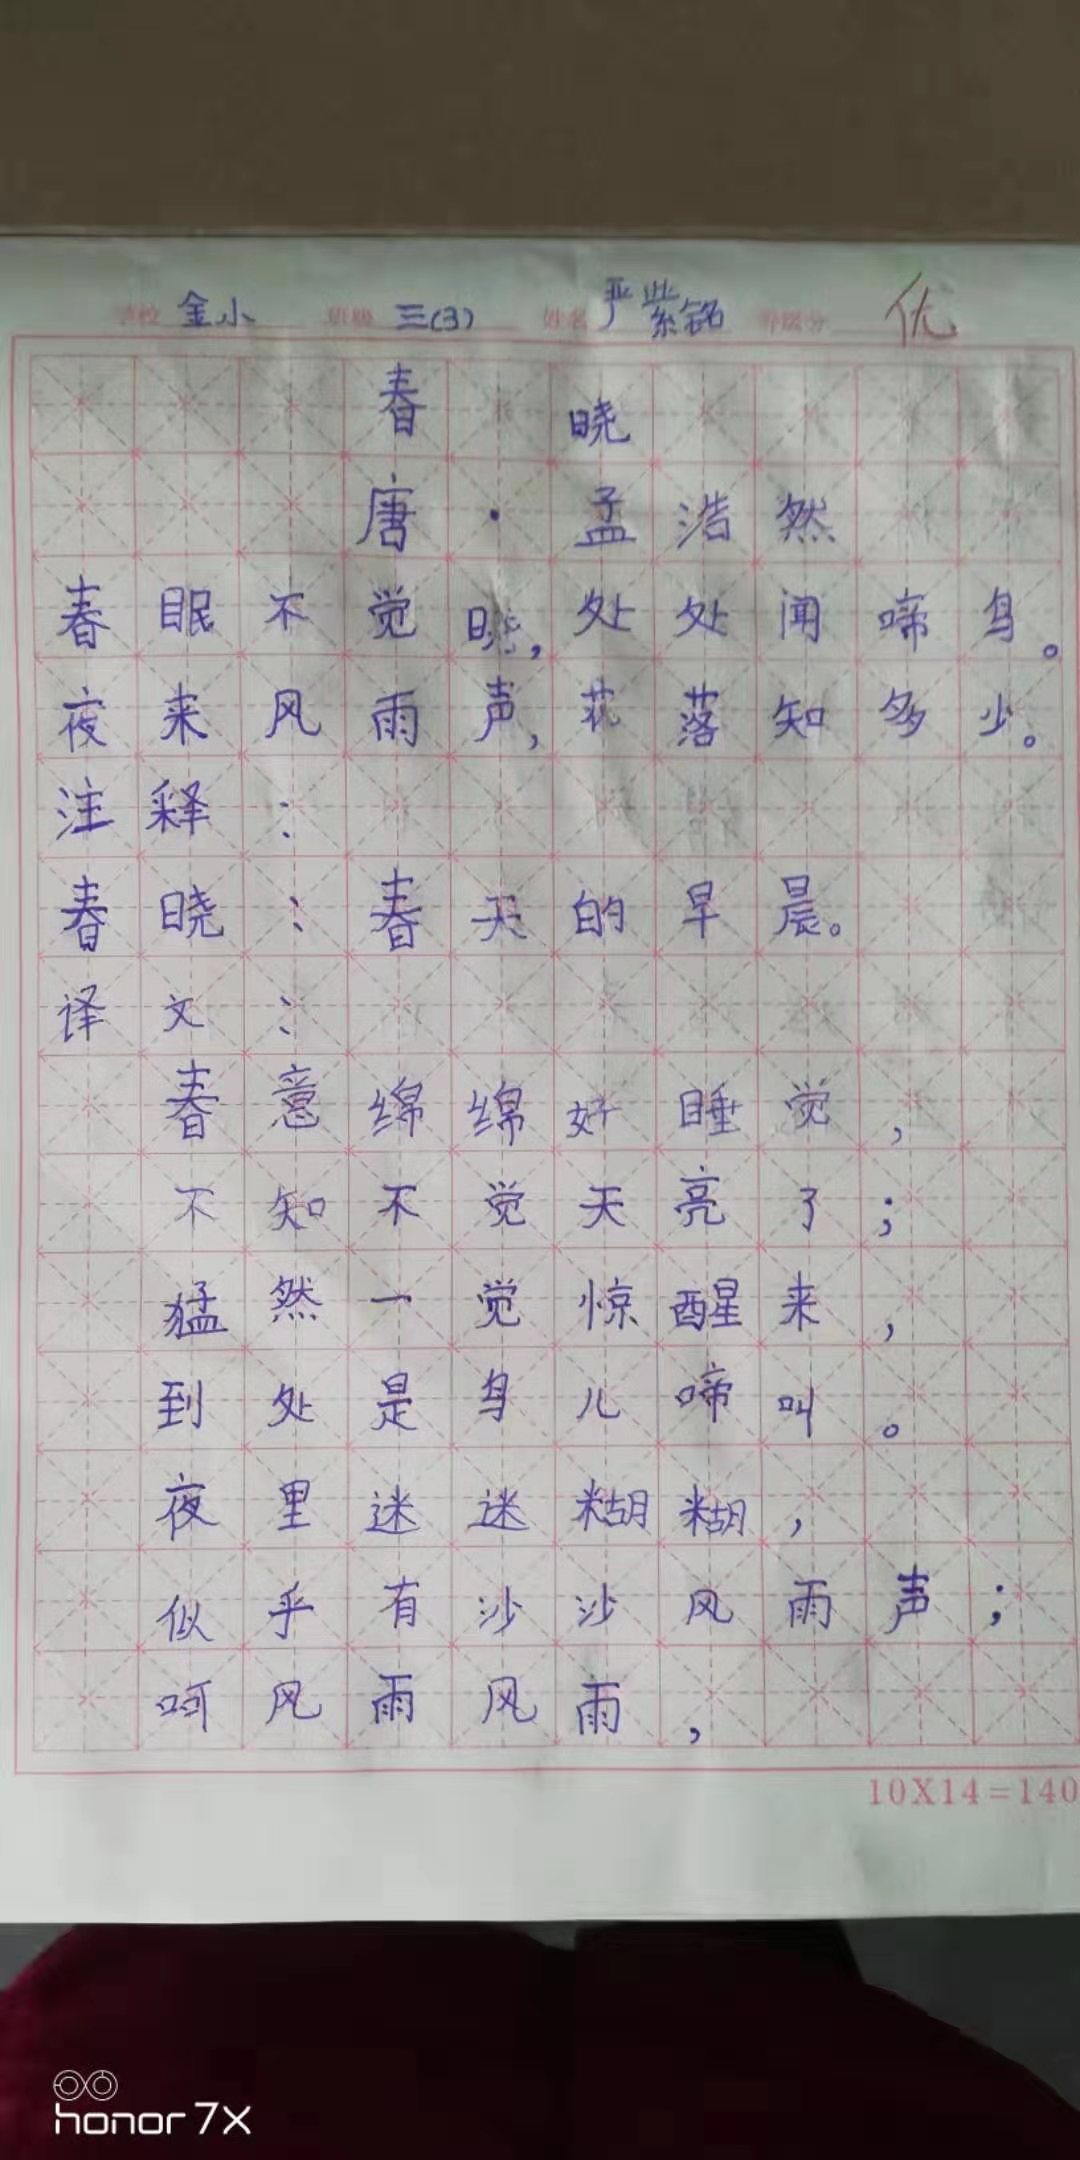 学校 金小 班级 三(3) 姓名 严紫铭 等级分 优
春 晓
唐·孟浩然
春眠不觉晓,处处闻啼鸟。
夜来风雨声,花落知多少。
注释:
春晓:春天的早晨。
译文:
春意绵绵好睡觉,
不知不觉天亮了;
猛然一觉惊醒来,
到处是鸟儿啼叫。
夜里迷迷糊糊,
似乎有沙沙风雨声;
呵风雨风雨,
10X14=140
honor 7X